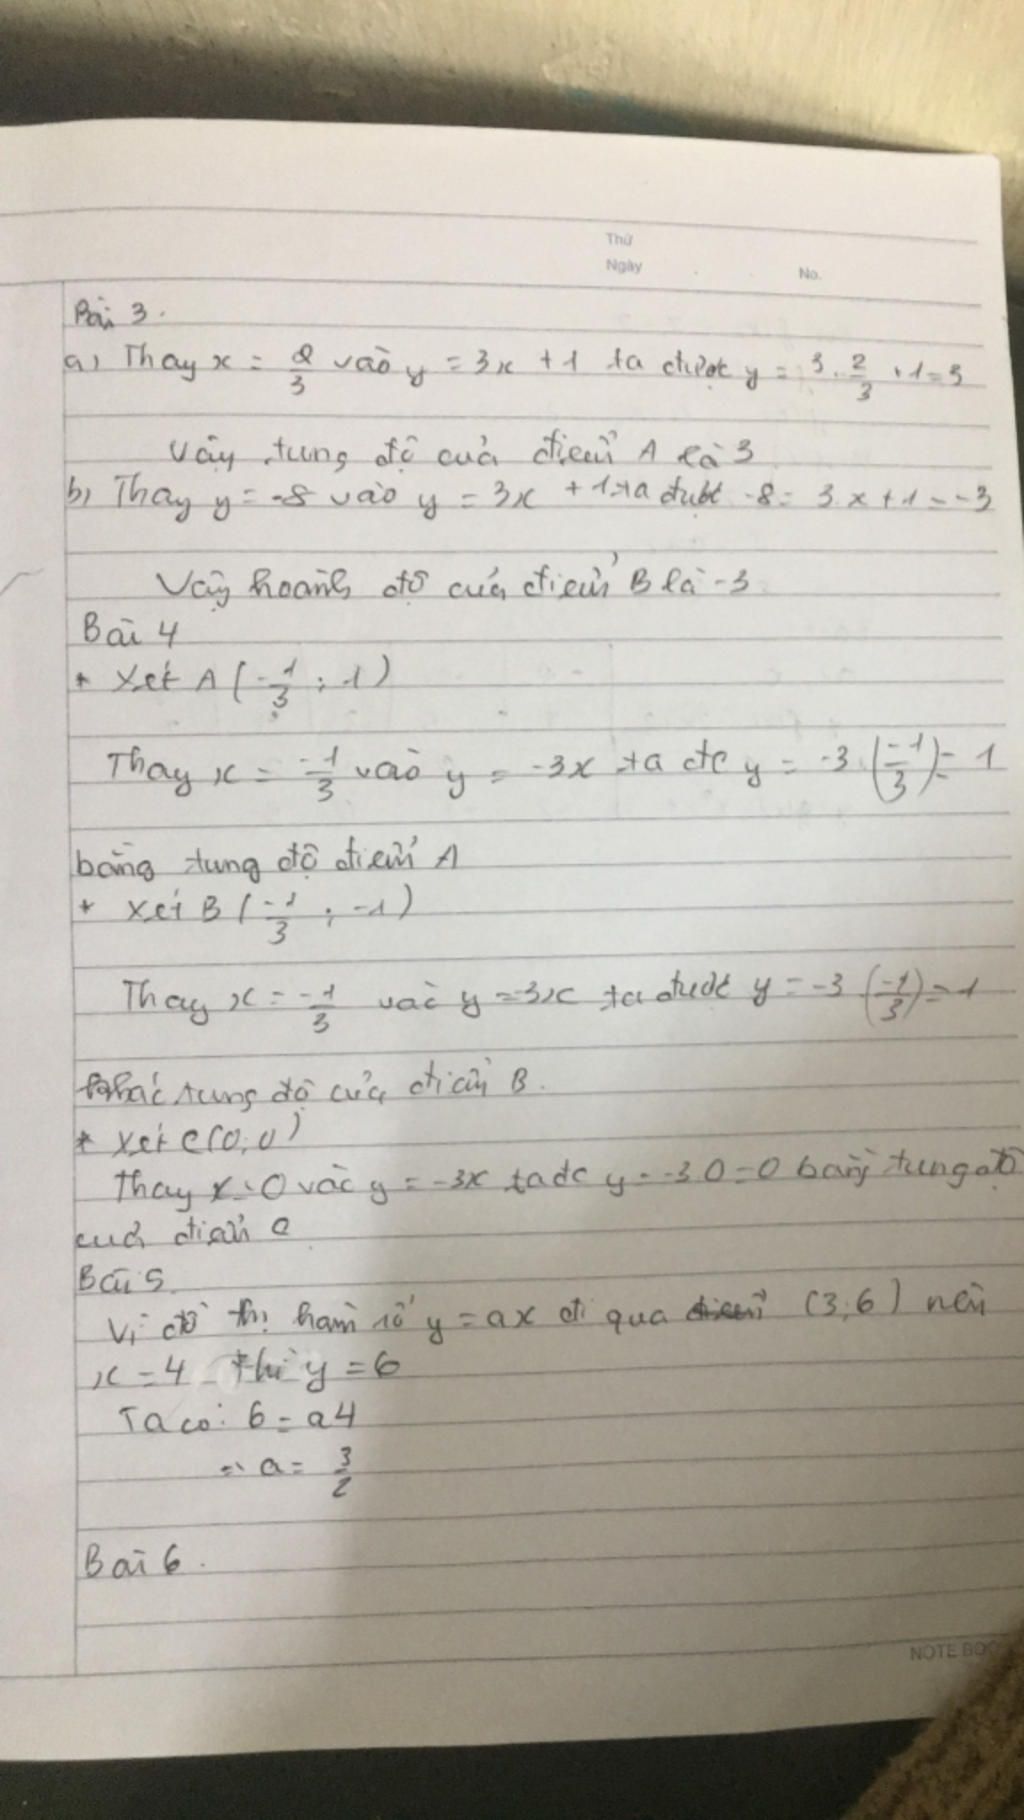 Thứ
Ngày
No.
Bài 3.
a) Thay x = 2/3 vào y = 3x + 1 ta được y = 3. 2/3 + 1 = 3
Vậy tung độ của điểm A là 3
b) Thay y = -8 vào y = 3x + 1 ta được -8 = 3.x + 1 = -3
Vậy hoành độ của điểm B là -3
Bài 4
* Xét A (-1/3 ; 1)
Thay x = -1/3 vào y = -3x ta đc y = -3.(-1/3) = 1
bằng tung độ điểm A
* Xét B (-1/3 ; -1)
Thay x = -1/3 vào y = -3x ta được y = -3 (-1/3) = 1
khác tung độ của điểm B.
* Xét C(0; 0)
Thay x = 0 vào y = -3x ta đc y = -3 0 = 0 bằng tung độ
của điểm C
Bài 5.
Vì đồ thị hàm số y = ax đi qua điểm (3;6) nên
x = 4 thì y = 6
Ta có: 6 = a4
=> a = 3/2
Bài 6.